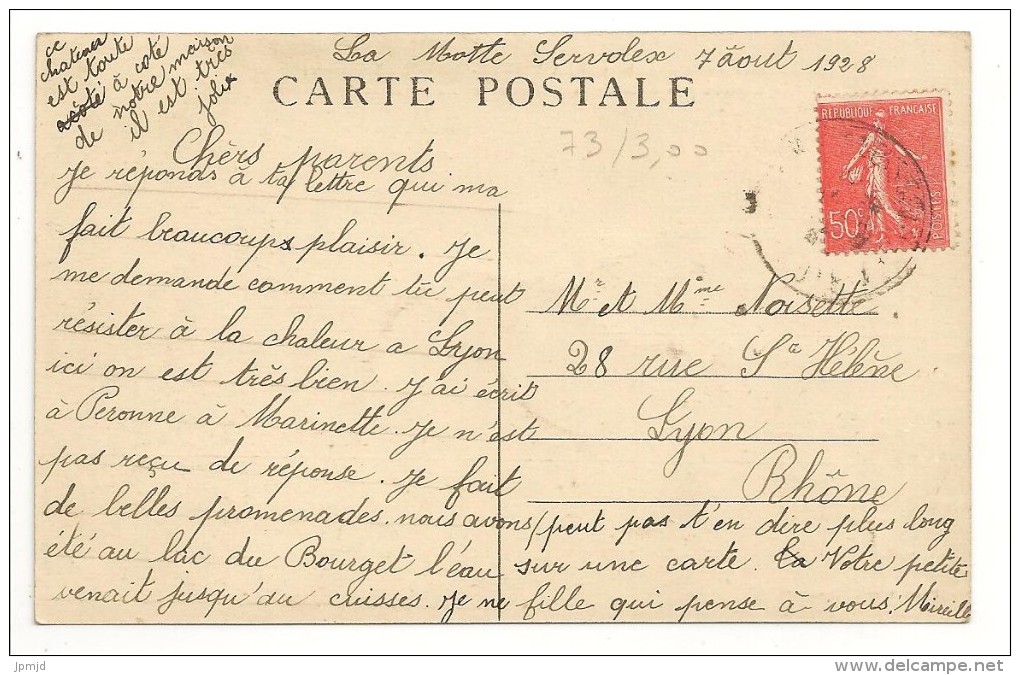 La Motte Servolex 7 aout 1928
CARTE POSTALE
ce
chateau
est toute
à coté
de notre maison
il est très
jolie
73/3,00
REPUBLIQUE FRANÇAISE
50c
POSTES
Chèrs parents
Je réponds à ta lettre qui ma
fait beaucoup plaisir. Je
me demande comment tu peut
résister à la chaleur a Lyon
ici on est très bien. J'ai écrit
à Peronne à Marinette. Je n'est
pas reçu de réponse. Je fait
de belles promenades. nous avons
été au lac du Bourget l'eau
venait jusqu'au cuisses. Je ne
peut pas t'en dire plus long
sur une carte. Votre petite
fille qui pense à vous. Mireille
Mr et Mme Noisette
28 rue Ste Hélène
Lyon
Rhône
jpmjd
www.delcampe.net